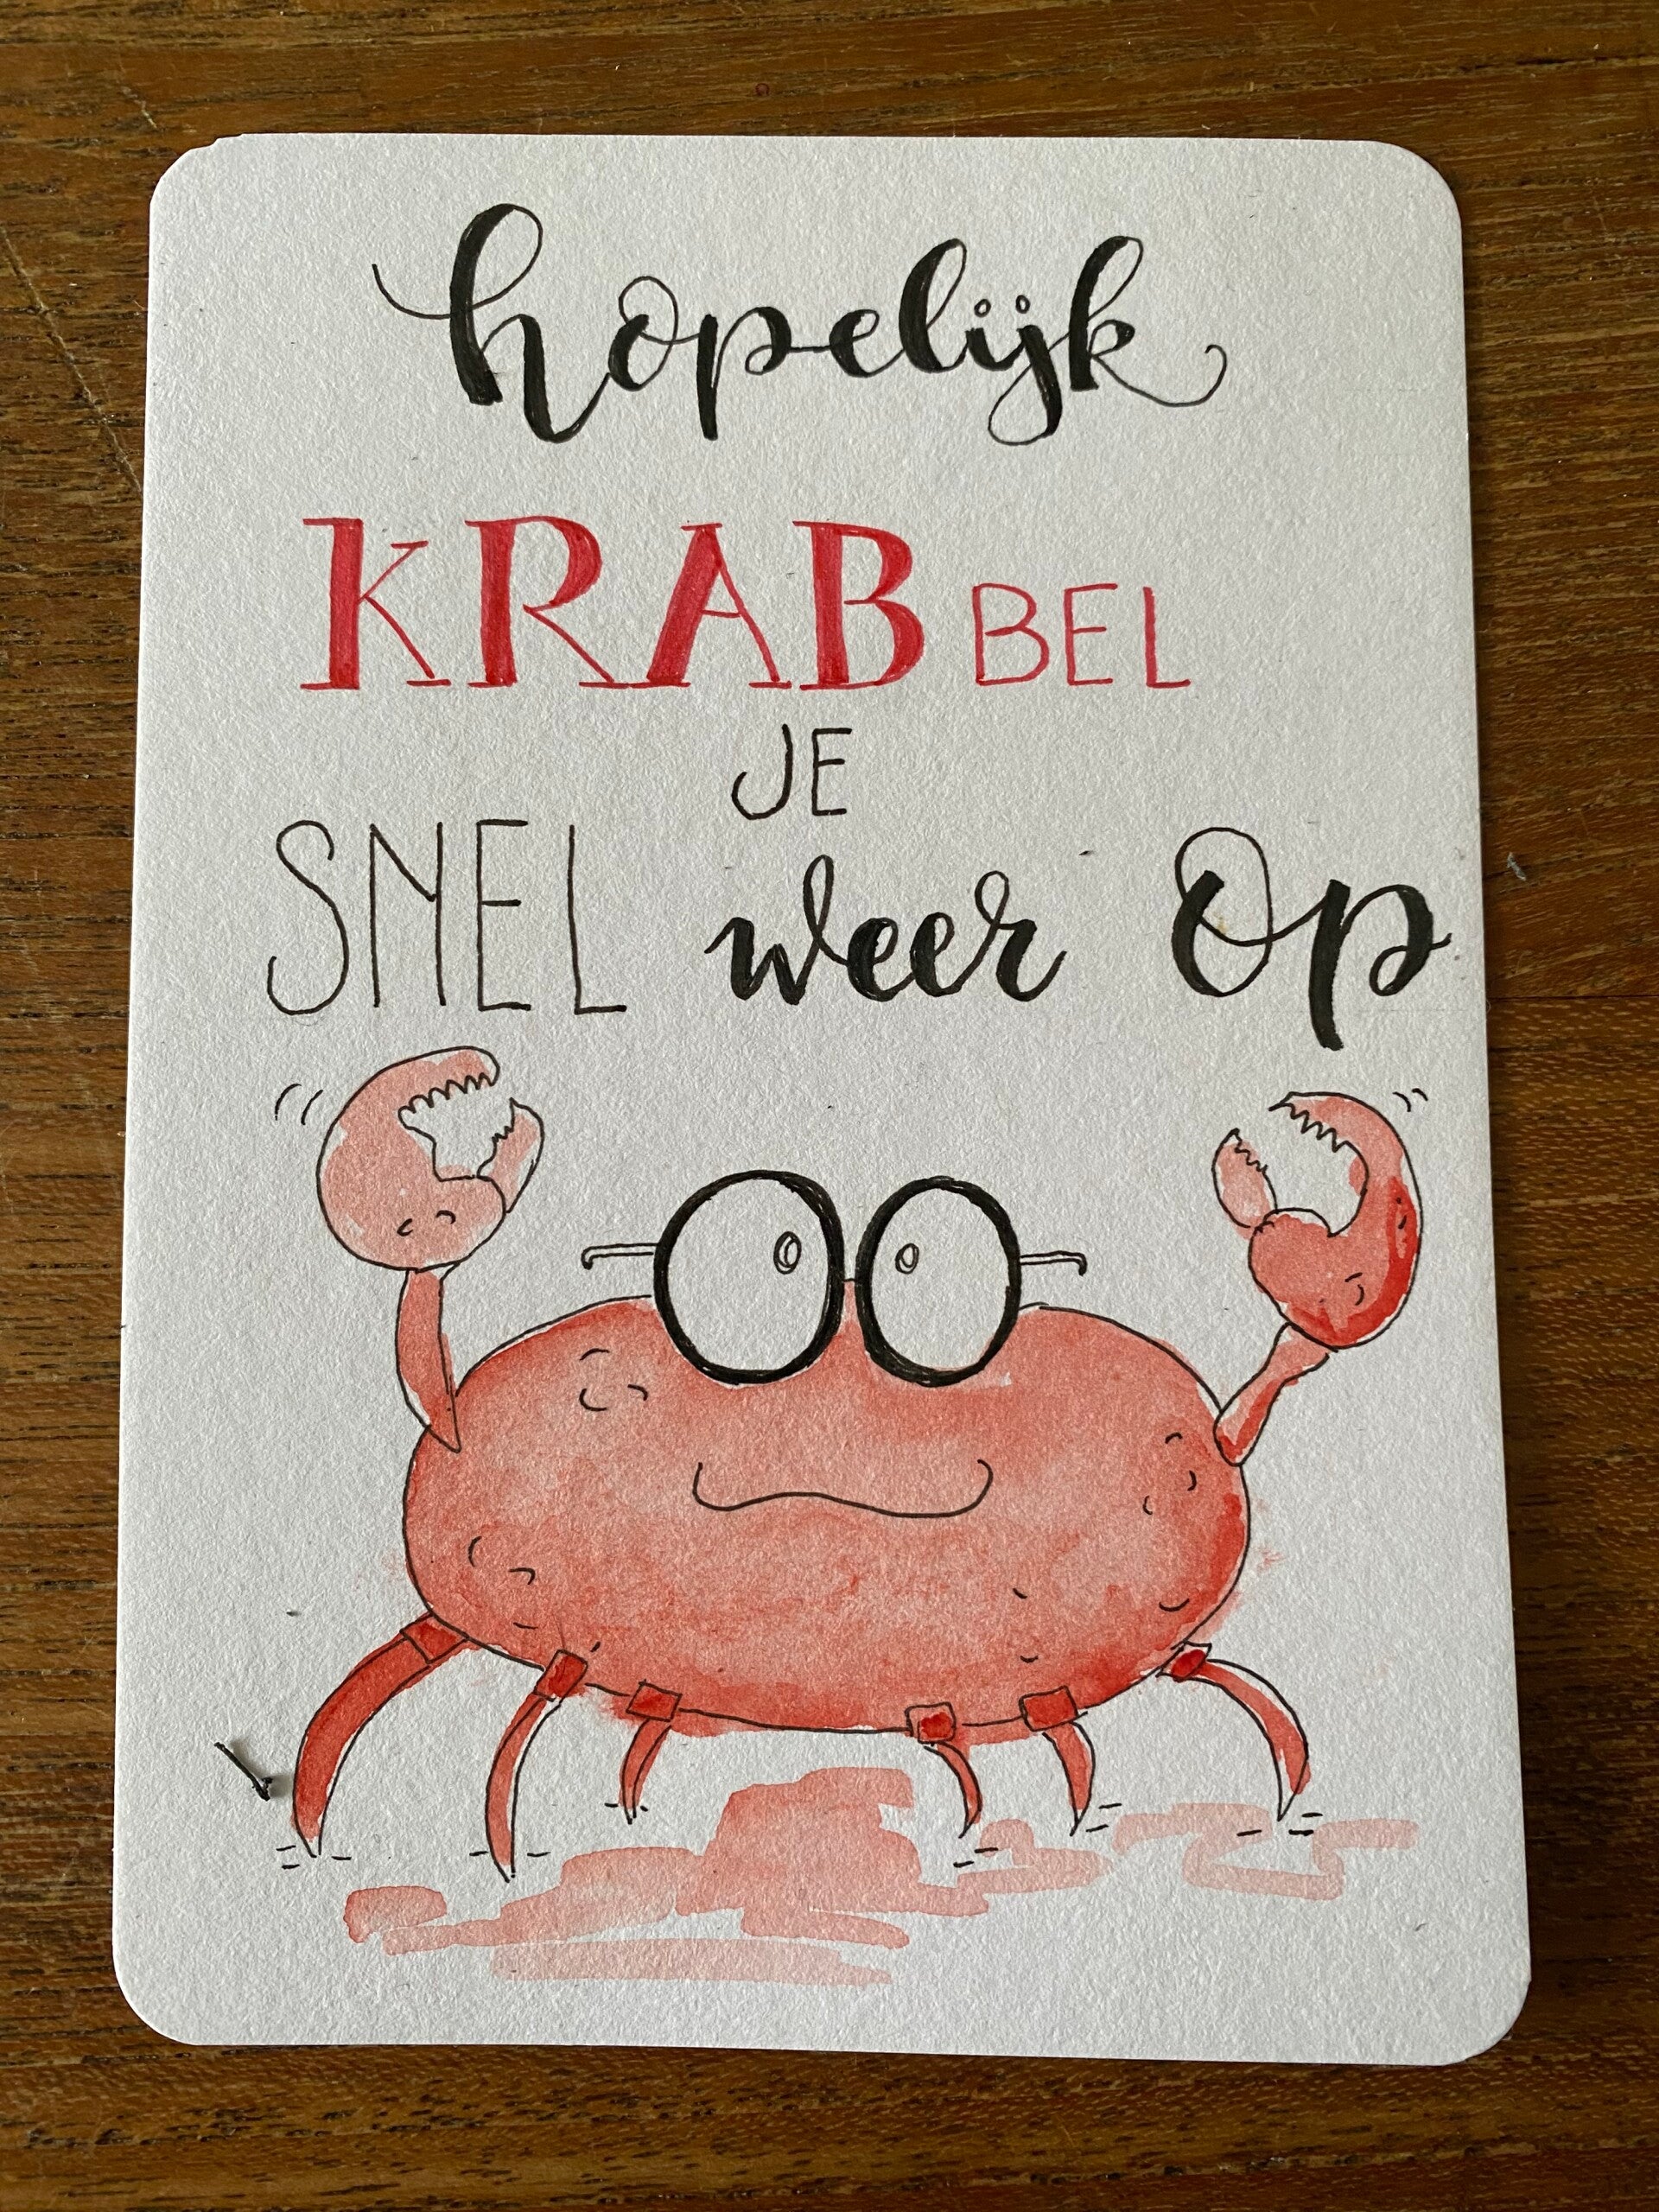 hopelijk
KRABBEL
JE
SNEL weer op